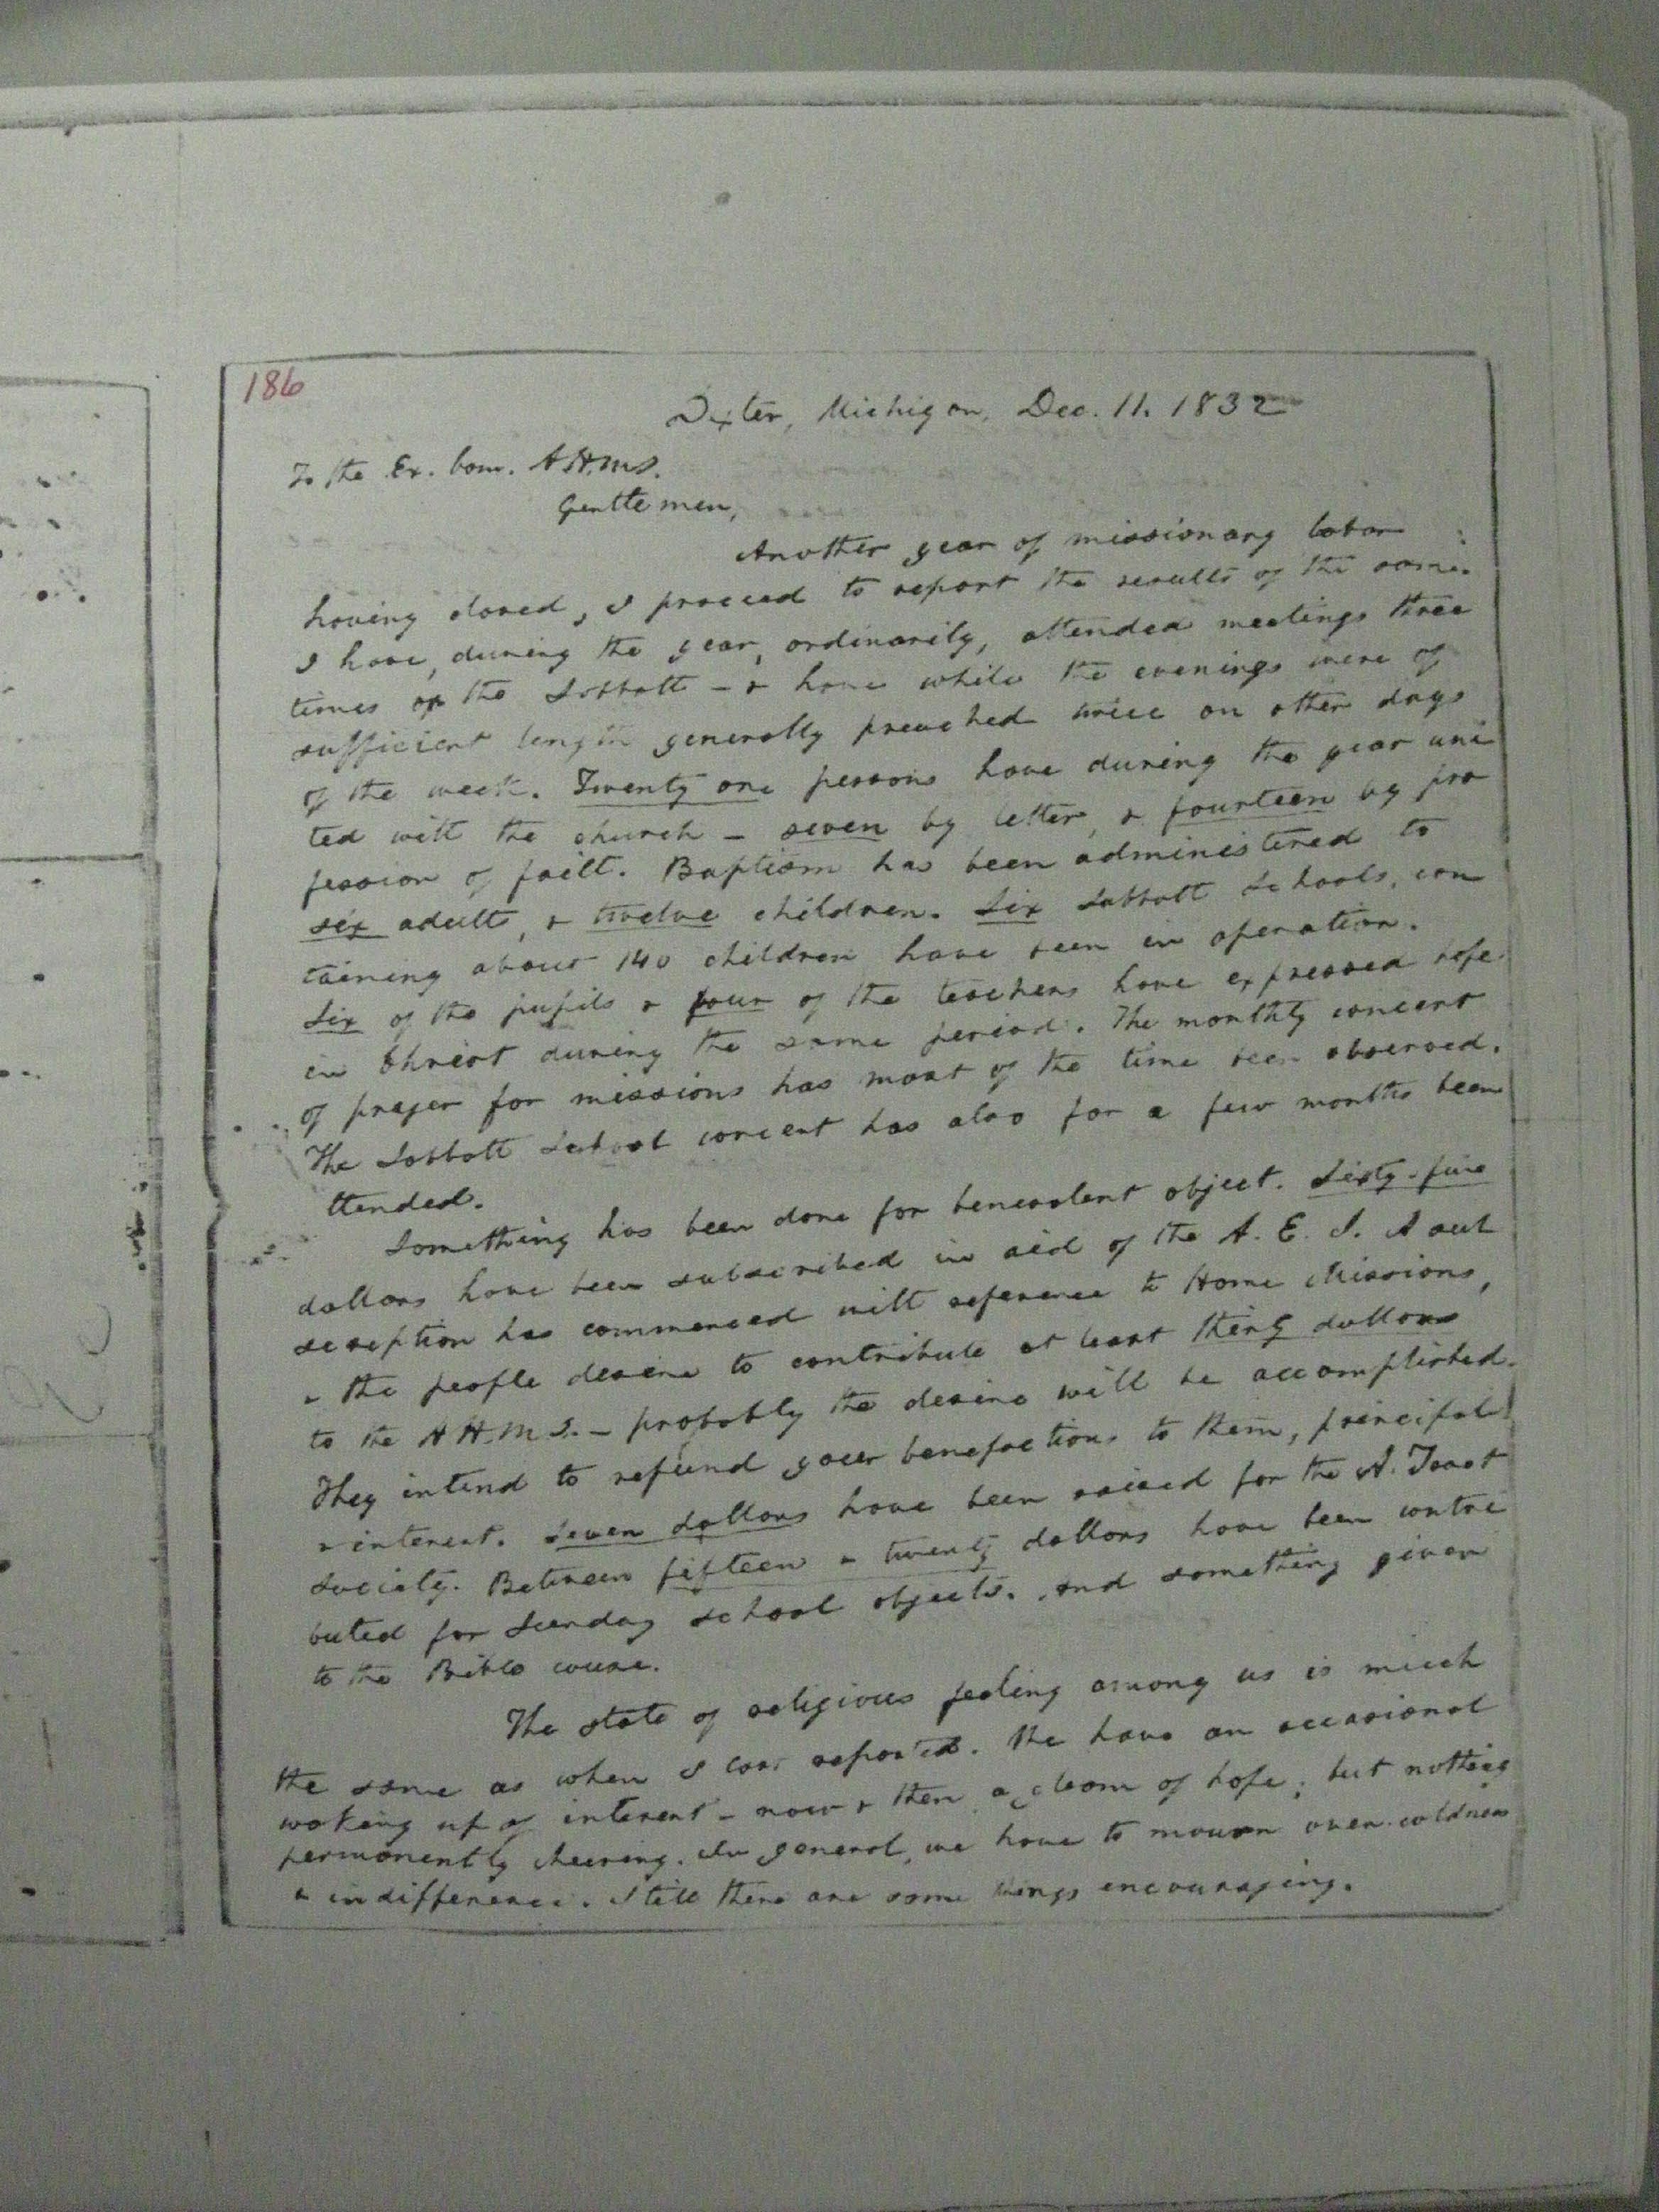 186
Dexter, Michigan, Dec. 11. 1832
To the Ex. Com. A.H.M.S.
Gentlemen,
Another year of missionary labor
having closed, I proceed to report the results of the same.
I have, during the year, ordinarily, attended meetings three
times on the Sabbath - & have while the evenings were of
sufficient length generally preached twice on other days
of the week. Twenty one persons have during the year uni
ted with the church - seven by letter, & fourteen by pro
fession of faith. Baptism has been administered to
six adults, & twelve children. Six Sabbath Schools, con
taining about 140 children have been in operation.
Six of the pupils & four of the teachers have expressed hope
in Christ during the same period. The monthly concert
of prayer for missions has most of the time been observed.
The Sabbath School concert has also for a few months been
ttended.
Something has been done for benevolent object. Sixty-five
dollars have been subscribed in aid of the A. E. S. A sub
scription has commenced with reference to Home Missions,
& the people desire to contribute at least thirty dollars
to the A H.M.S. - probably the desire will be accomplished.
They intend to refund your benefactions to them, principal
& interest. Seven dollars have been raised for the A. Tract
Society. Between fifteen & twenty dollars have been contri
buted for Sunday School objects. And something given
to the Bible cause.
The state of religious feeling among us is much
the same as when I last reported. We have an occasional
waking up of interest - now & then a gleam of hope; but nothing
permanently cheering. In general, we have to mourn over coldness
& indifference. Still there are some things encouraging.